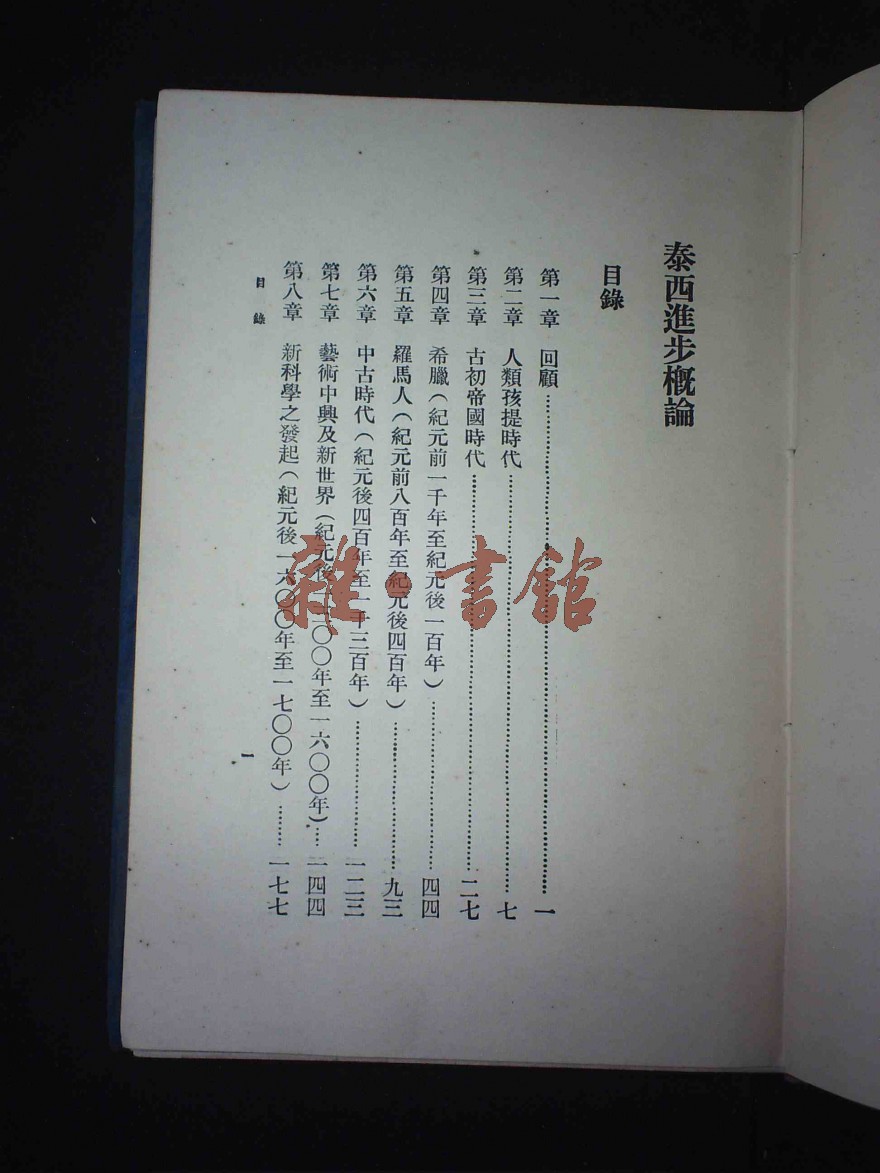 泰西進步概論
目錄
第一章　回顧……一
第二章　人類孩提時代……七
第三章　古初帝國時代……二七
第四章　希臘（紀元前一千年至紀元後一百年）……四四
第五章　羅馬人（紀元前八百年至紀元後四百年）……九三
第六章　中古時代（紀元後四百年至一千三百年）……一二三
第七章　藝術中興及新世界（紀元後 三〇〇年至一六〇〇年）…一四四
第八章　新科學之發起（紀元後一六〇〇年至一七〇〇年）……一七七
目錄
一
雜·書館